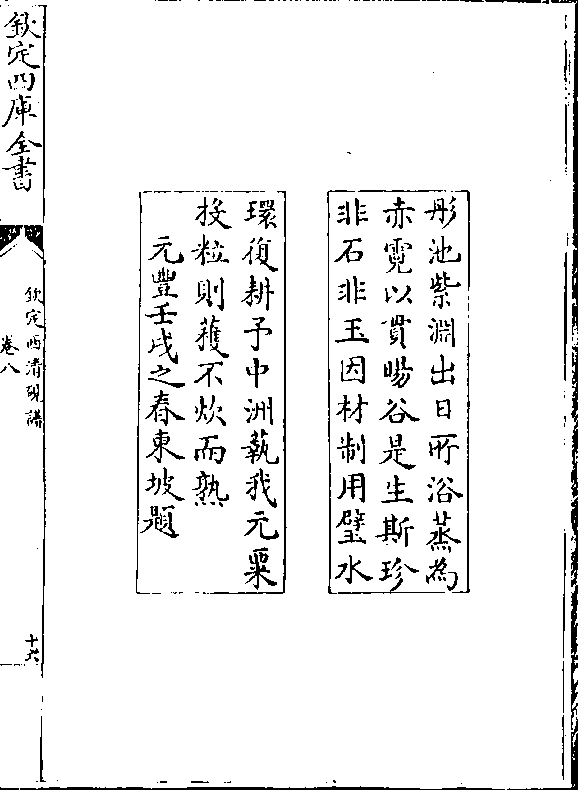 彤池紫淵出日所浴蒸為
赤霓以貫暘谷是生斯珍
非石非玉因材制用璧水
環復耕予中洲蓺我元粟
投粒則穫不炊而熟
元豐壬戌之春東坡題
欽定四庫全書
欽定西清硯譜
卷八
十六